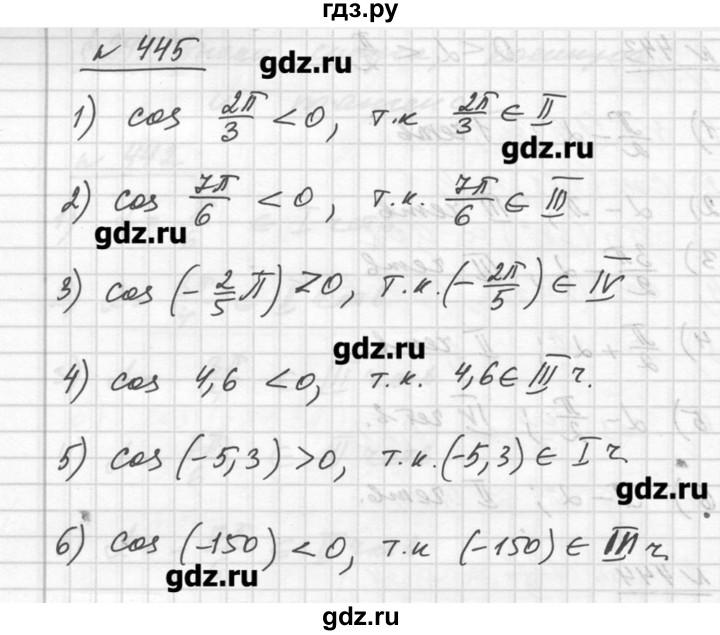 гдз.ру
№ 445
gdz.ru
1) cos 2π/3 < 0, т.к 2π/3 ∈ II
gdz.ru
2) cos 7π/6 < 0, т.к. 7π/6 ∈ III
gdz.ru
3) cos (-2/5 π) > 0, т.к. (-2π/5) ∈ IV
gdz.ru
4) cos 4,6 < 0, т.к. 4,6 ∈ III ч.
5) cos (-5,3) > 0, т.к. (-5,3) ∈ I ч
gdz.ru
6) cos (-150) < 0, т.к (-150) ∈ III ч
gdz.ru
gdz.ru